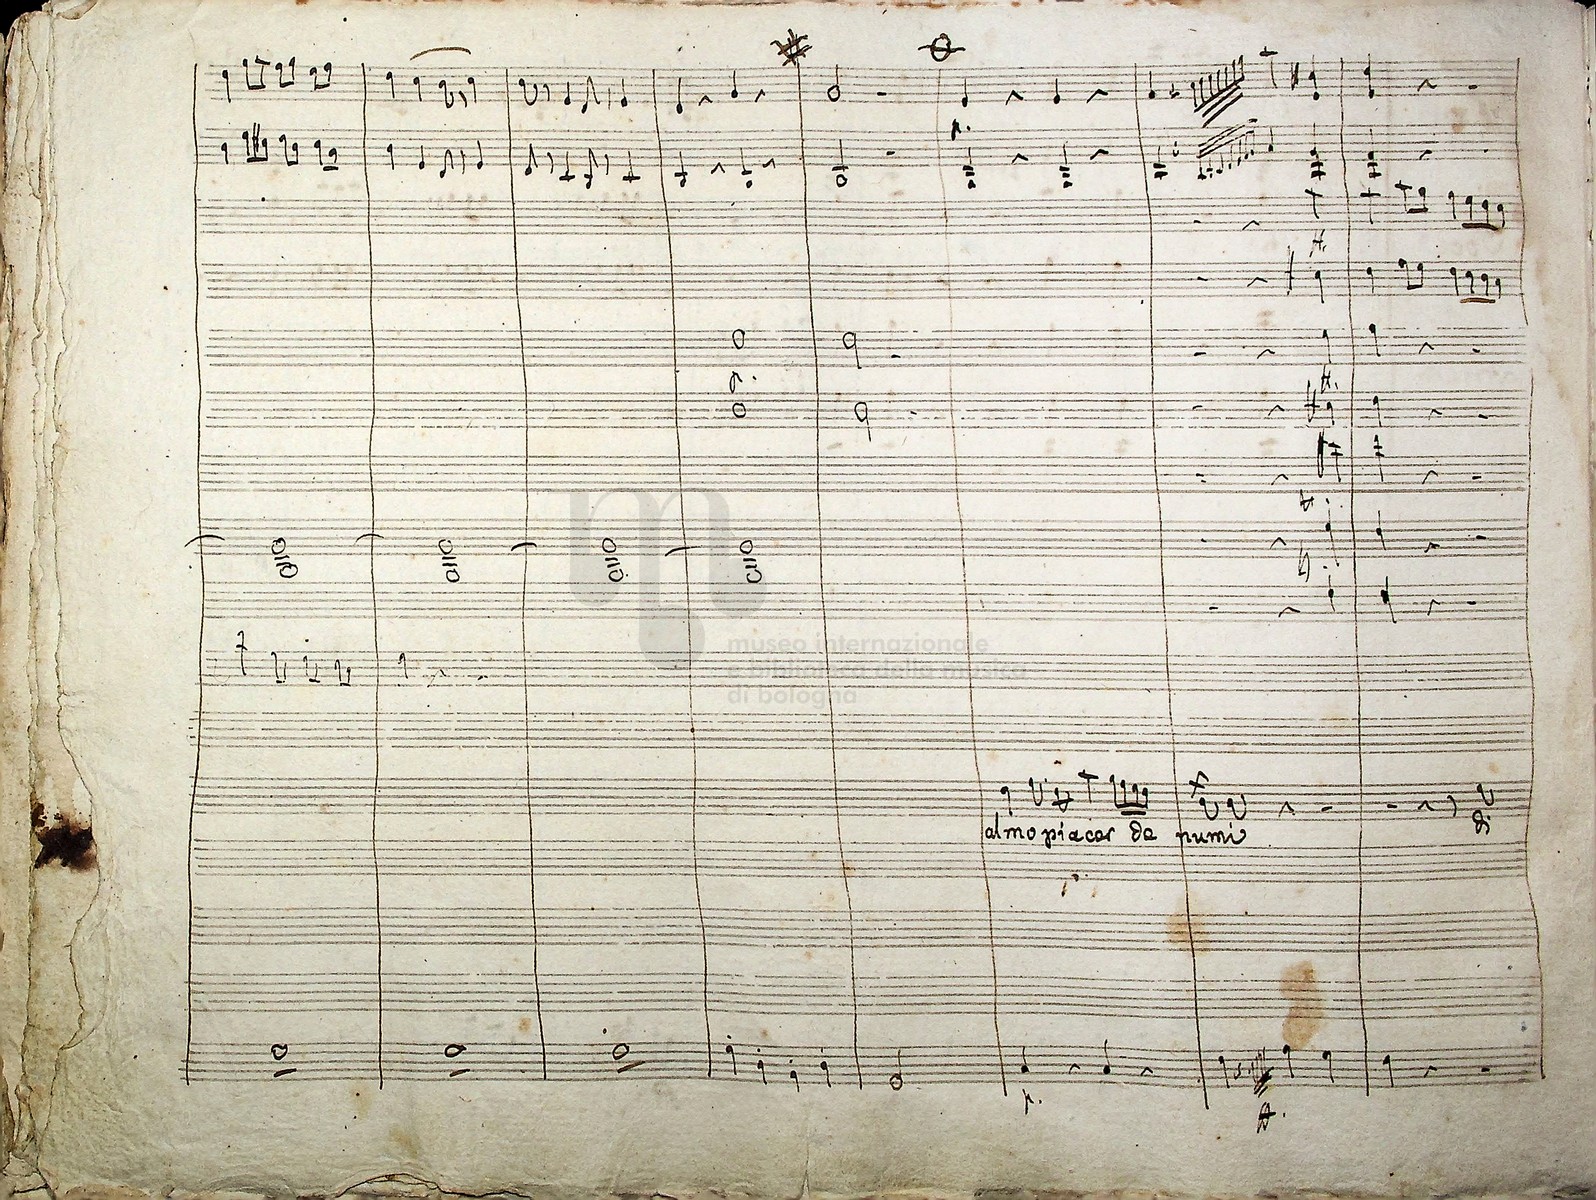 p.
ff.
p.
ff.
museo internazionale
e biblioteca della musica
di bologna
almo piacer de numi
di
p.
ff.